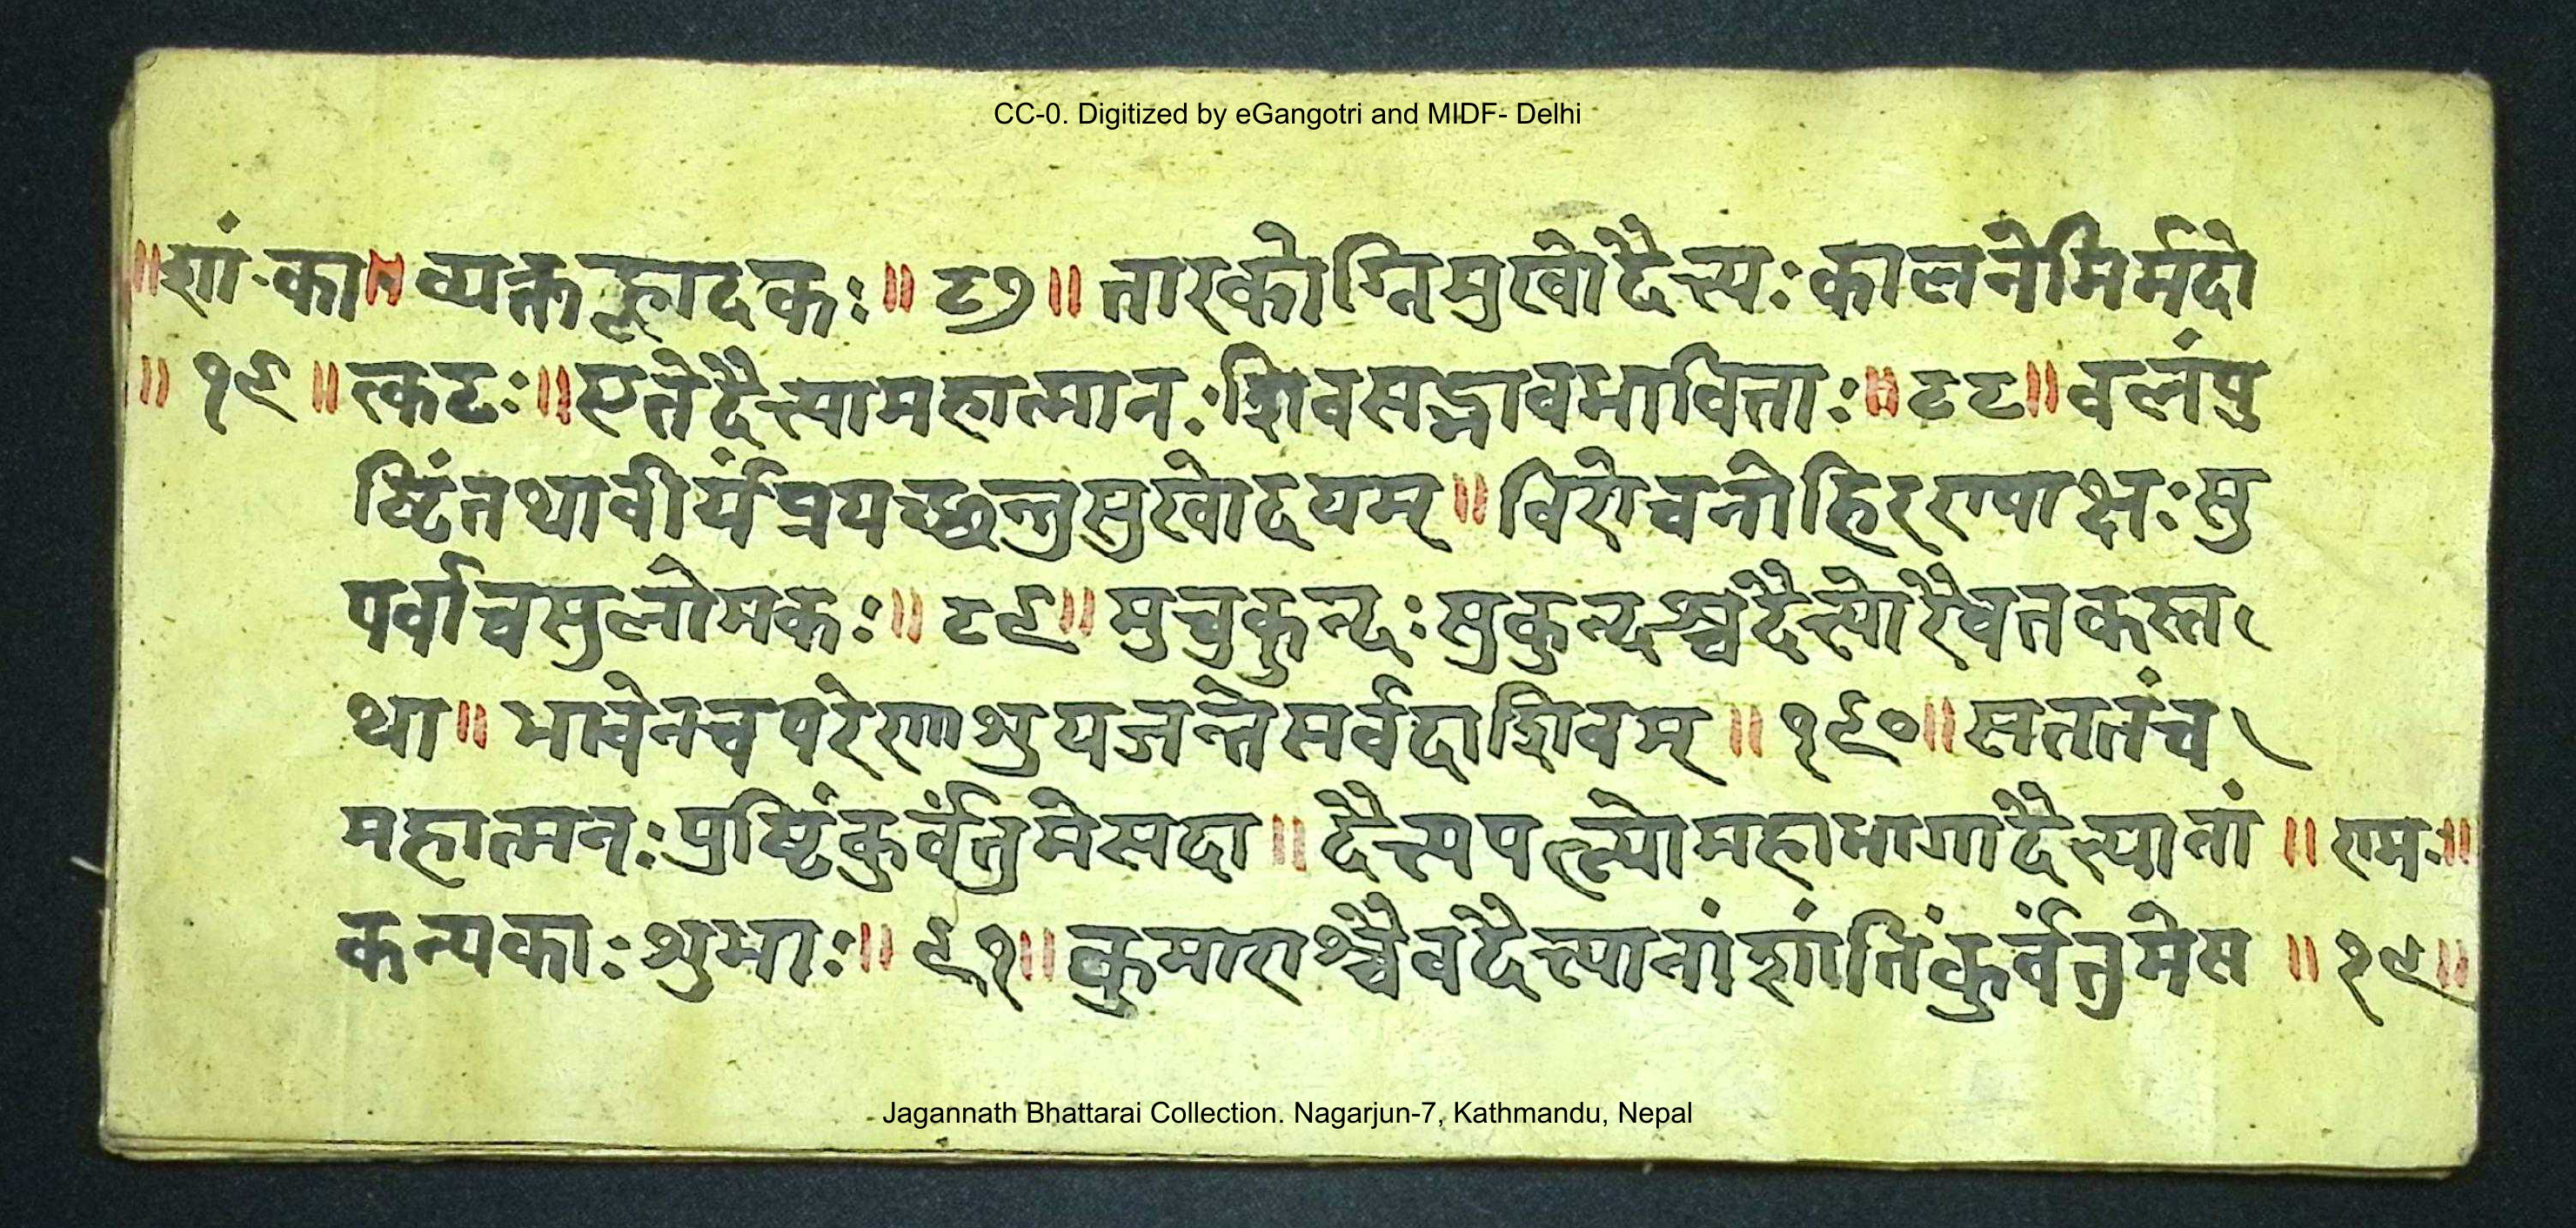 CC-0. Digitized by eGangotri and MIDF- Delhi
॥शां.का॥ व्यक्तह्लादकः॥ ८७॥ तारकोग्निमुखोदैत्यःकालनेमिर्मदो
॥ १९॥ त्कटः॥एतेदैत्यामहात्मानःशिवसद्भावभाविताः॥ ८८॥ वलंपु
ष्टिंतथावीर्यंप्रयच्छन्तुसुखोदयम्॥ विरोचनोहिरण्याक्षःसु
पर्वाचसुलोमकः॥ ८९॥ मुचुकुन्दःसुकुन्दश्चदैत्योरैवतकस्त
था॥ भावेनचपरेणाशुयजन्तेसर्वदाशिवम्॥ १९०॥सततंच
महात्मनःपुष्टिंकुर्वंतुमेसदा॥ दैत्यपत्न्योमहाभागादैत्यानां ॥ रामः॥
कन्यकाःशुभाः॥ ९१॥ कुमाराश्चैवदैत्यानांशांतिंकुर्वंतुमेस ॥ १९॥
Jagannath Bhattarai Collection. Nagarjun-7, Kathmandu, Nepal